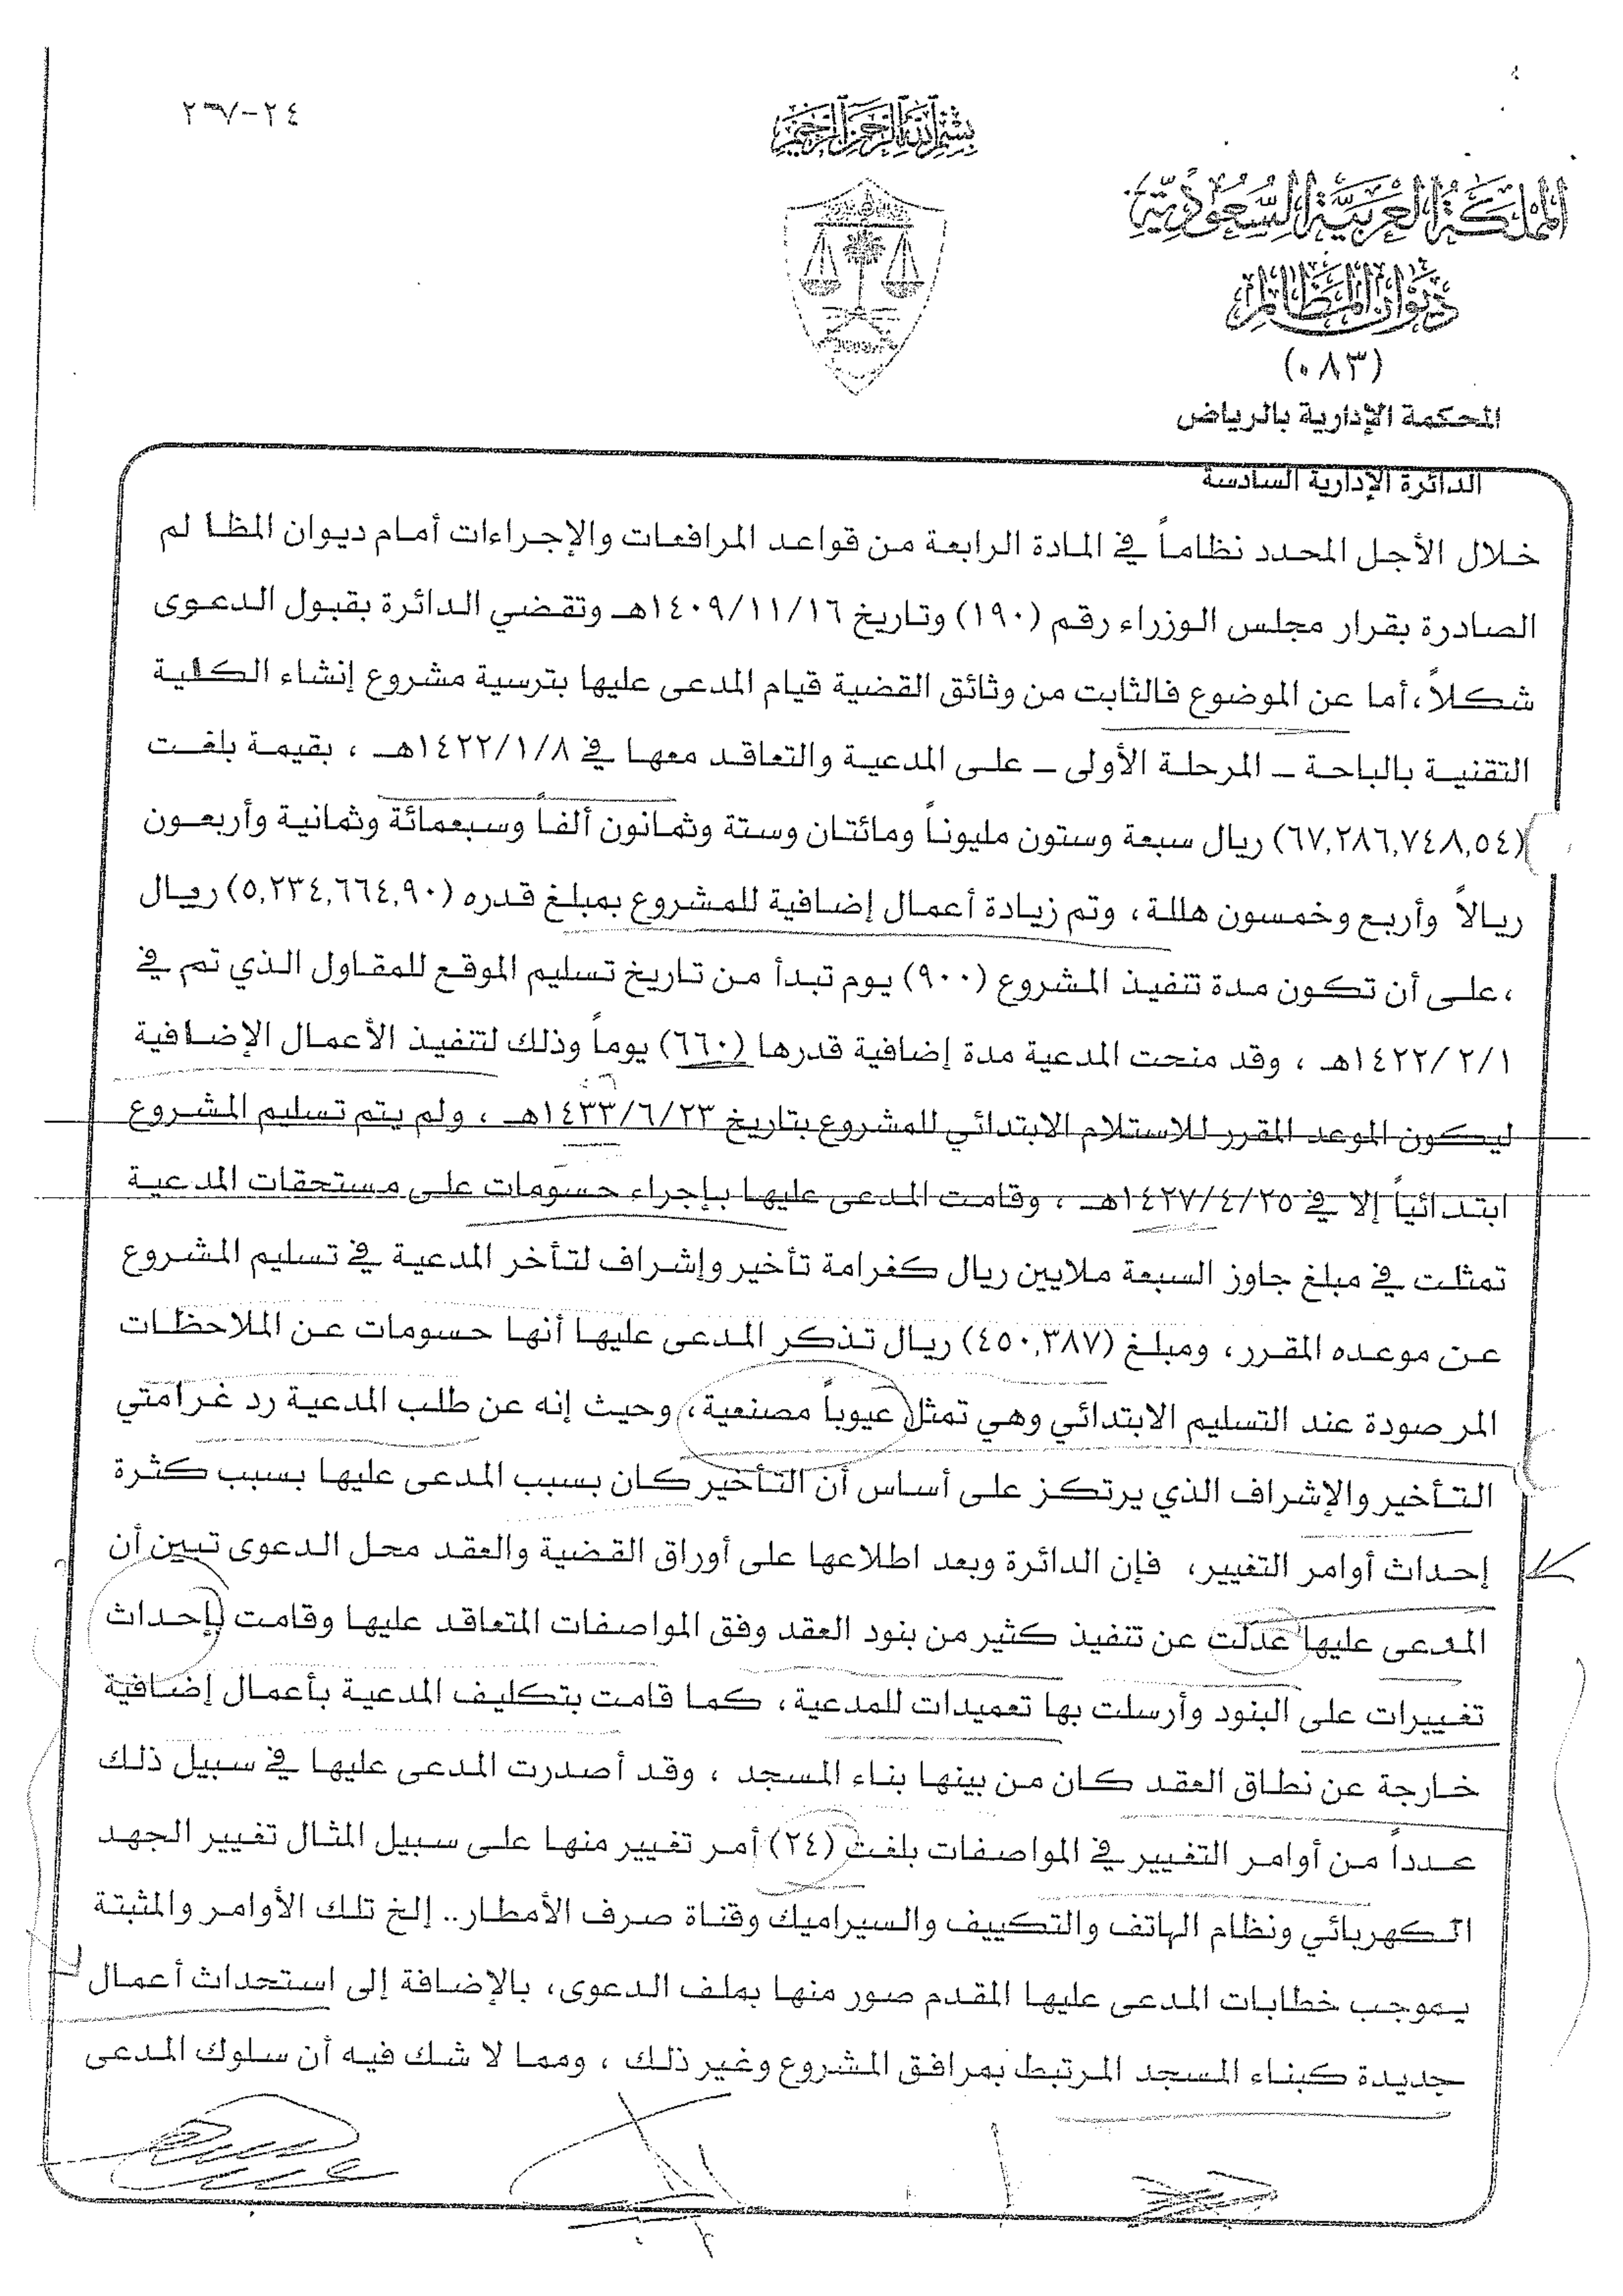 ٢٤-٢٦٧
بسم الله الرحمن الرحيم
المملكة العربية السعودية
ديوان المظالم
(٠٨٣)
المحكمة الإدارية بالرياض
الدائرة الإدارية السادسة
خلال الأجل المحدد نظاماً في المادة الرابعة من قواعد المرافعات والإجراءات أمام ديوان المظا لم
الصادرة بقرار مجلس الوزراء رقم (١٩٠) وتاريخ ١٤٠٩/١١/١٦هـ وتقضي الدائرة بقبول الدعوى
شكلاً، أما عن الموضوع فالثابت من وثائق القضية قيام المدعى عليها بترسية مشروع إنشاء الكلية
التقنية بالباحة – المرحلة الأولى – على المدعية والتعاقد معها في ١٤٢٢/١/٨هـ ، بقيمة بلغت
(٦٧,٢٨٦,٧٤٨,٥٤) ريال سبعة وستون مليوناً ومائتان وستة وثمانون ألفاً وسبعمائة وثمانية وأربعون
ريالاً وأربع وخمسون هللة، وتم زيادة أعمال إضافية للمشروع بمبلغ قدره (٥,٢٣٤,٦٦٤,٩٠) ريال
، على أن تكون مدة تنفيذ المشروع (٩٠٠) يوم تبدأ من تاريخ تسليم الموقع للمقاول الذي تم في
١٤٢٢/٢/١هـ ، وقد منحت المدعية مدة إضافية قدرها (٦٦٠) يوماً وذلك لتنفيذ الأعمال الإضافية
ليكون الموعد المقرر للاستلام الابتدائي للمشروع بتاريخ ١٤٣٣/٦/٢٣هـ ، ولم يتم تسليم المشروع
ابتدائياً إلا في ١٤٢٧/٤/٢٥هـ ، وقامت المدعى عليها بإجراء حسومات على مستحقات المدعية
تمثلت في مبلغ جاوز السبعة ملايين ريال كغرامة تأخير وإشراف لتأخر المدعية في تسليم المشروع
عن موعده المقرر، ومبلغ (٤٥٠,٣٨٧) ريال تذكر المدعى عليها أنها حسومات عن الملاحظات
المرصودة عند التسليم الابتدائي وهي تمثل عيوباً مصنعية، وحيث إنه عن طلب المدعية رد غرامتي
التأخير والإشراف الذي يرتكز على أساس أن التأخير كان بسبب المدعى عليها بسبب كثرة
إحداث أوامر التغيير، فإن الدائرة وبعد اطلاعها على أوراق القضية والعقد محل الدعوى تبين أن
المدعى عليها عدلت عن تنفيذ كثير من بنود العقد وفق المواصفات المتعاقد عليها وقامت بإحداث
تغييرات على البنود وأرسلت بها تعميدات للمدعية، كما قامت بتكليف المدعية بأعمال إضافية
خارجة عن نطاق العقد كان من بينها بناء المسجد ، وقد أصدرت المدعى عليها في سبيل ذلك
عدداً من أوامر التغيير في المواصفات بلغت (٢٤) أمر تغيير منها على سبيل المثال تغيير الجهد
الكهربائي ونظام الهاتف والتكييف والسيراميك وقناة صرف الأمطار.. إلخ تلك الأوامر والمثبتة
بموجب خطابات المدعى عليها المقدم صور منها بملف الدعوى، بالإضافة إلى استحداث أعمال
جديدة كبناء المسجد المرتبط بمرافق المشروع وغير ذلك ، ومما لا شك فيه أن سلوك المدعى